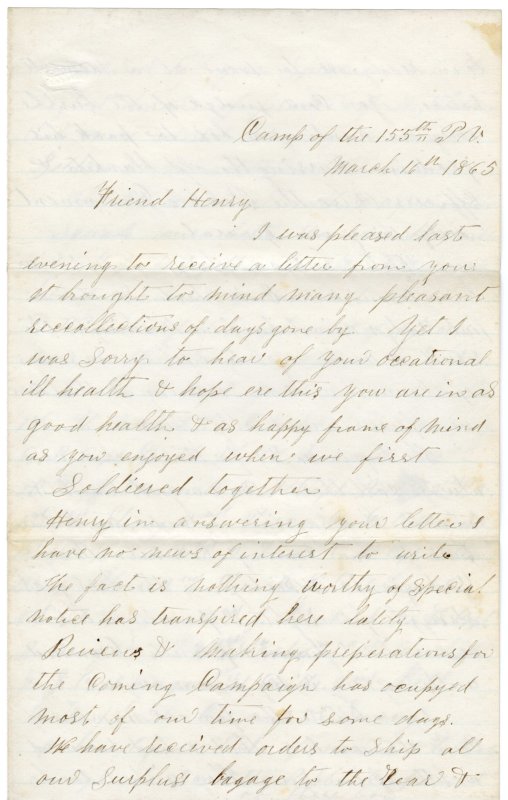 Camp of the 155th P.V.
March 16th 1865
Friend Henry
I was pleased last
evening to receive a letter from you
it brought to mind many pleasant
reccollections of days gone by Yet I
was Sorry to hear of your occational
ill health & hope ere this you are in as
good health & as happy frame of mind
as you enjoyed when we first
Soldiered together
Henry in answering your letter I
have no news of interest to write
the fact is nothing worthy of special
notice has transpired here lately
Reviews & Making preperations for
the Coming Campaign has ocupyed
most of our time for some days.
We have received orders to Ship all
our Surpluss bagage to the Rear &